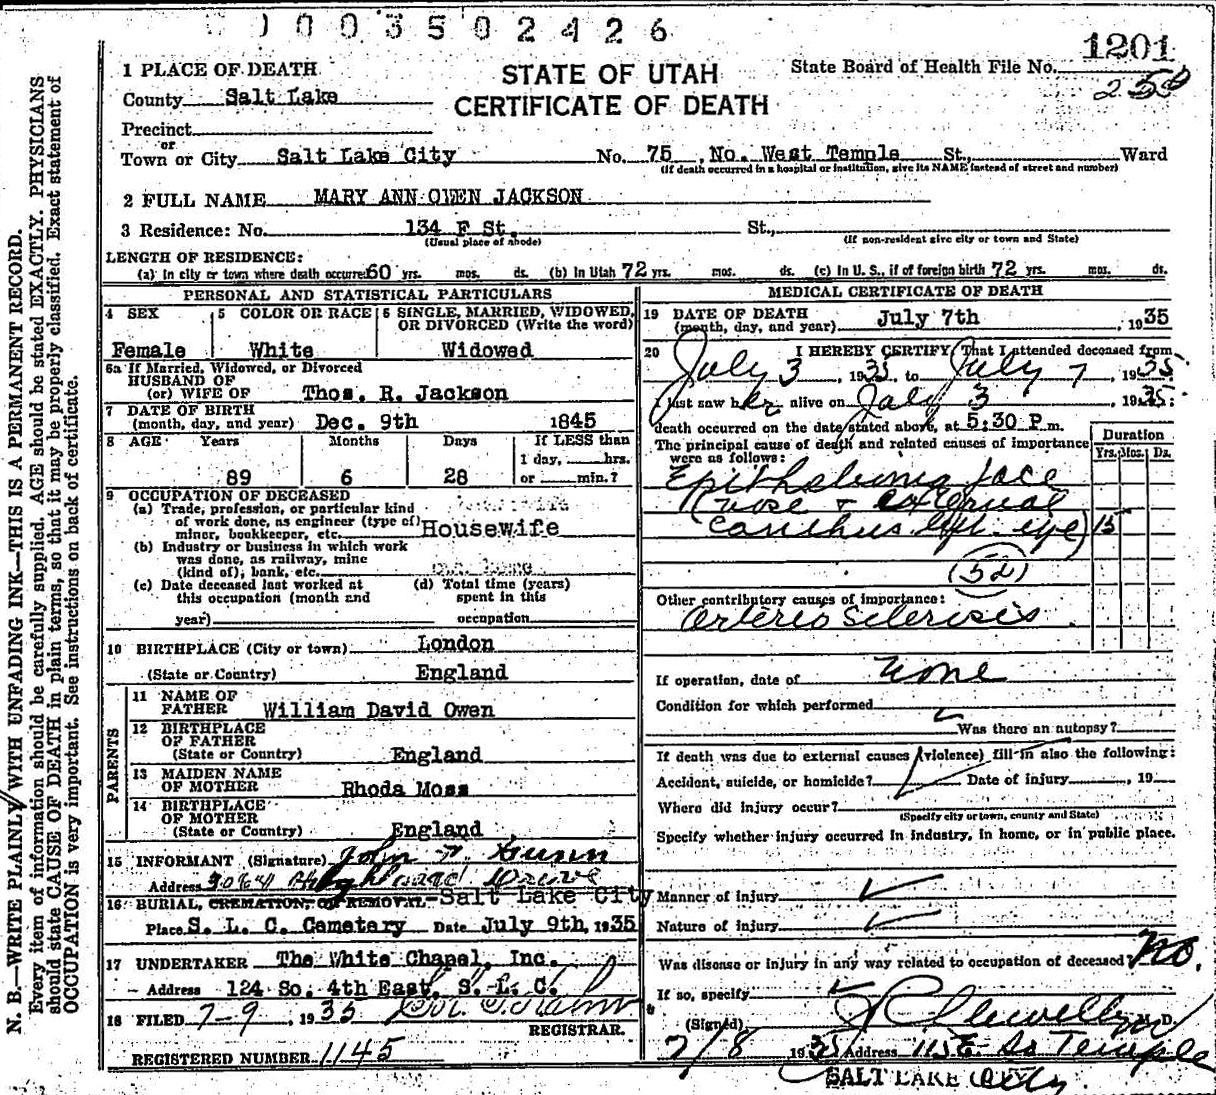 1 0 0 3 5 0 2 4 2 6
1201
1 PLACE OF DEATH
STATE OF UTAH
State Board of Health File No.
250
County Salt Lake
CERTIFICATE OF DEATH
Precinct
or
Town or City Salt Lake City No. 75 , No. West Temple St., Ward
(If death occurred in a hospital or institution, give its NAME instead of street and number)
2 FULL NAME MARY ANN OWEN JACKSON
3 Residence: No. 134 F St. St.,
(Usual place of abode) (If non-resident give city or town and State)
LENGTH OF RESIDENCE:
(a) In city or town where death occurred 60 yrs. mos. ds. (b) In Utah 72 yrs. mos. ds. (c) In U. S., if of foreign birth 72 yrs. mos. ds.
PERSONAL AND STATISTICAL PARTICULARS
4 SEX 5 COLOR OR RACE 6 SINGLE, MARRIED, WIDOWED,
OR DIVORCED (Write the word)
Female White Widowed
6a If Married, Widowed, or Divorced
HUSBAND OF
(or) WIFE OF Thos. R. Jackson
7 DATE OF BIRTH
(month, day, and year) Dec. 9th 1845
8 AGE Years Months Days If LESS than
1 day, hrs.
89 6 28 or min.?
9 OCCUPATION OF DECEASED
(a) Trade, profession, or particular kind
of work done, as engineer (type of)
miner, bookkeeper, etc. Housewife
(b) Industry or business in which work
was done, as railway, mine
(kind of); bank, etc.
(c) Date deceased last worked at (d) Total time (years)
this occupation (month and spent in this
year) occupation
10 BIRTHPLACE (City or town) London
(State or Country) England
PARENTS
11 NAME OF
FATHER William David Owen
12 BIRTHPLACE
OF FATHER
(State or Country) England
13 MAIDEN NAME
OF MOTHER Rhoda Moss
14 BIRTHPLACE
OF MOTHER
(State or Country) England
15 INFORMANT (Signature) John F. Gunn
Address Highland Drive
16 BURIAL, CREMATION, OR REMOVAL- Salt Lake City
Place S. L. C. Cemetery Date July 9th, 1935
17 UNDERTAKER The White Chapel, Inc.
Address 124 So. 4th East, S. L. C.
18 FILED 7-9 , 1935
REGISTRAR.
REGISTERED NUMBER 1145
MEDICAL CERTIFICATE OF DEATH
19 DATE OF DEATH
(month, day, and year) July 7th , 1935
20 I HEREBY CERTIFY, That I attended deceased from
July 3 , 1935, to July 7 , 1935
I last saw her alive on July 3 1935:
death occurred on the date stated above, at 5:30 P.m.
The principal cause of death and related causes of importance
were as follows:
Duration
Yrs. Mos. Ds.
Epithelioma face
(nose + external
canthus left eye) 15
(52)
Other contributory causes of importance:
Arterio Sclerosis
If operation, date of none
Condition for which performed
Was there an autopsy?
If death was due to external causes (violence) fill in also the following:
Accident, suicide, or homicide? Date of injury , 19
Where did injury occur?
(Specify city or town, county and State)
Specify whether injury occurred in industry, in home, or in public place.
Manner of injury
Nature of injury
Was disease or injury in any way related to occupation of deceased? No.
If so, specify
(Signed) Llewellyn M. D.
7/8 1935 Address 115 E So Temple
SALT LAKE City.
N. B.—WRITE PLAINLY WITH UNFADING INK—THIS IS A PERMANENT RECORD.
Every item of information should be carefully supplied. AGE should be stated EXACTLY. PHYSICIANS
should state CAUSE OF DEATH in plain terms, so that it may be properly classified. Exact statement of
OCCUPATION is very important. See instructions on back of certificate.